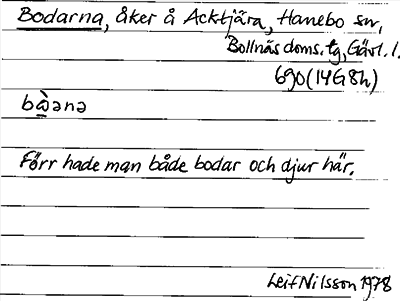 Bodarna, åker å Acktjära, Hanebo sn,
Bollnäs doms. tg, Gävl. l.
690 (14G8h)
Förr hade man både bodar och djur här.
Leif Nilsson 1978